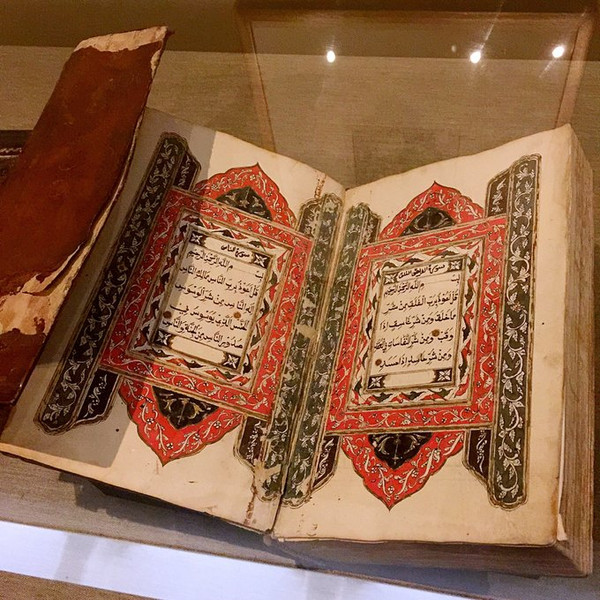 سورة الفلق
بسم الله الرحمن الرحيم
قل اعوذ برب الفلق من شر
ما خلق ومن شر غاسق اذا
وقب ومن شر النفاثات في العقد
ومن شر حاسد اذا حسد
سورة الناس
بسم الله الرحمن الرحيم
قل اعوذ برب الناس ملك النا
س اله الناس من شر الوسوس
الخناس الذي يوسوس في
صدور الناس من الجنة والناس